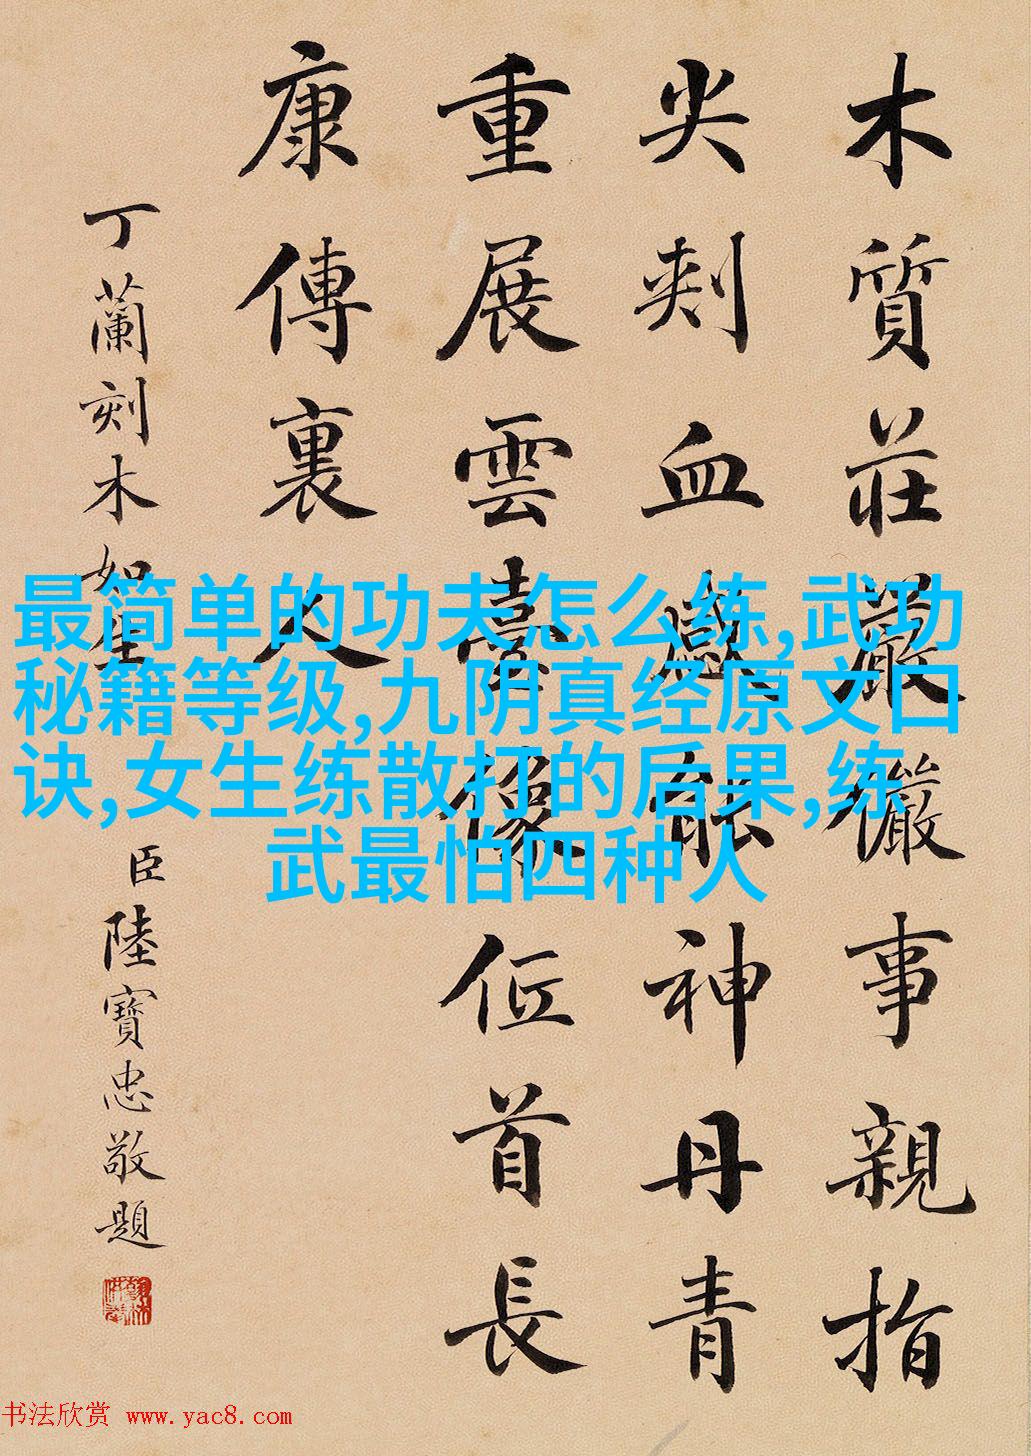 木質莊嚴儼事親指
尖刺血感能神丹青
重展雲臺像低首長
康傳裏人
丁蘭刻木如生
臣陸寶忠敬題
最简单的功夫怎么练,武功
秘籍等级,九阴真经原文口
诀,女生练散打的后果,练
武最怕四种人
书法欣赏 www.yac8.com